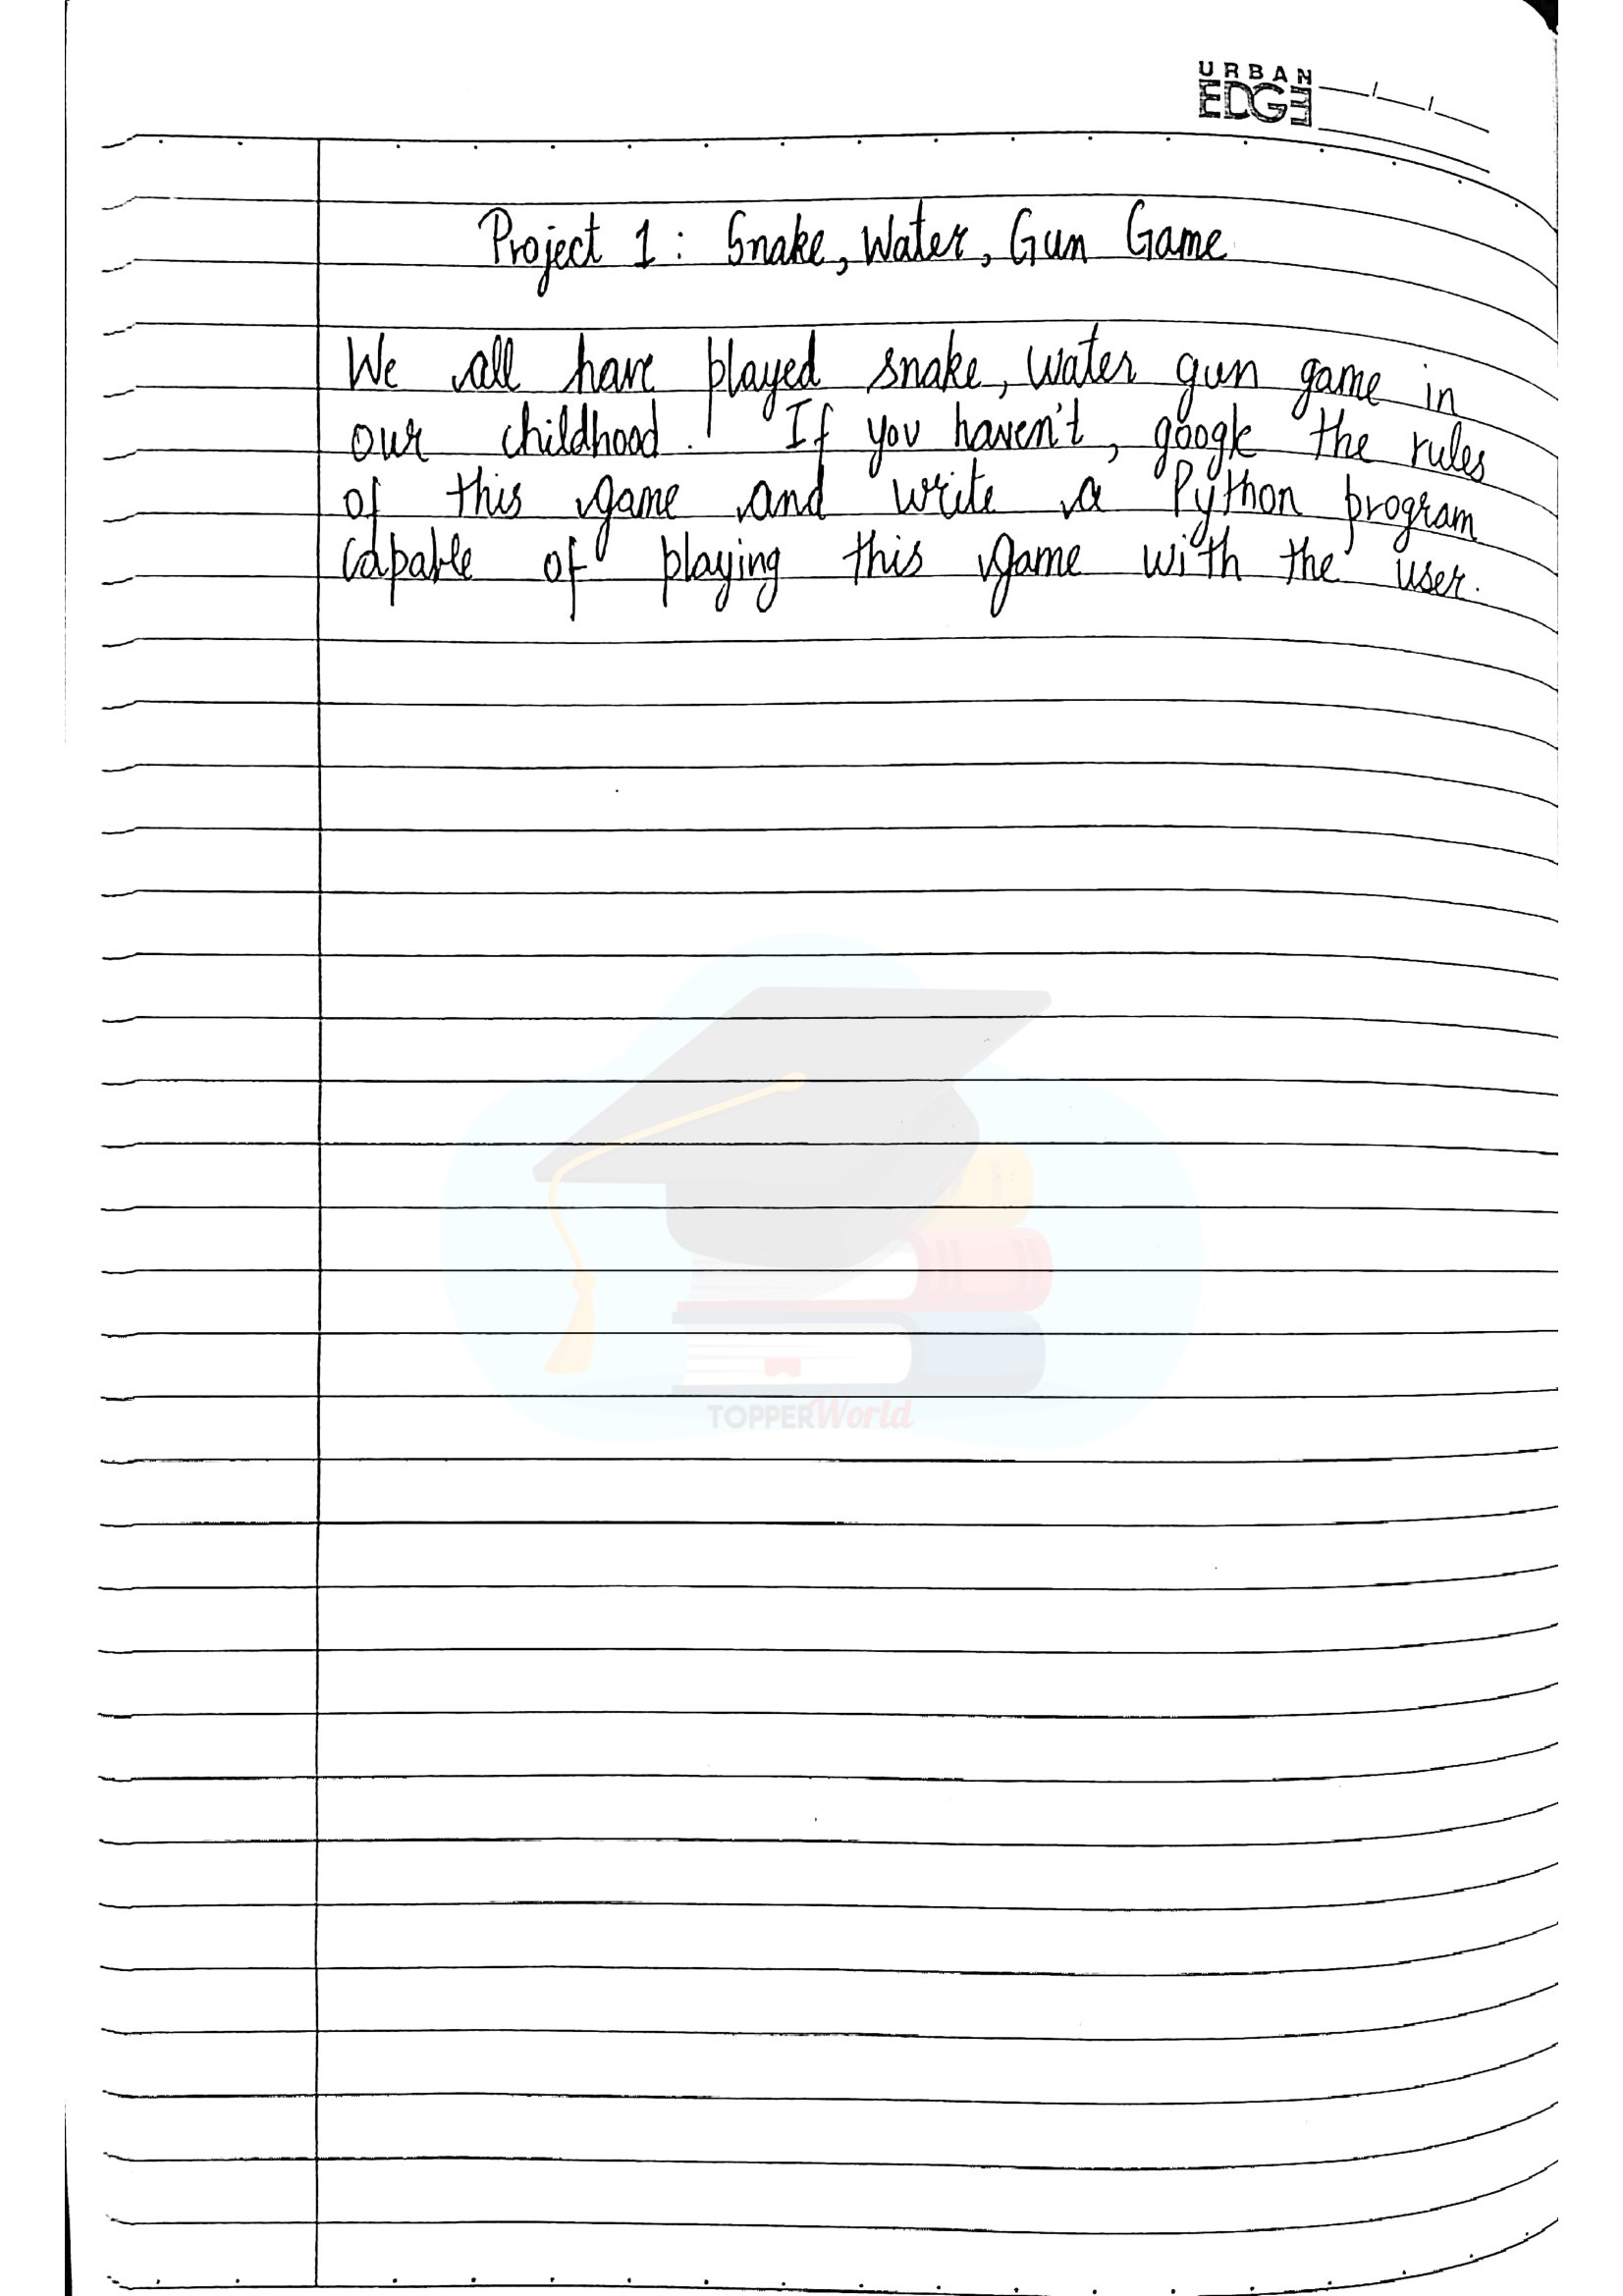 URBAN
EDGE
Project 1: Snake, Water, Gun Game
We all have played snake, water gun game in
our childhood. If you haven't, google the rules
of this game and write a Python program
capable of playing this game with the user.
TOPPERWorld